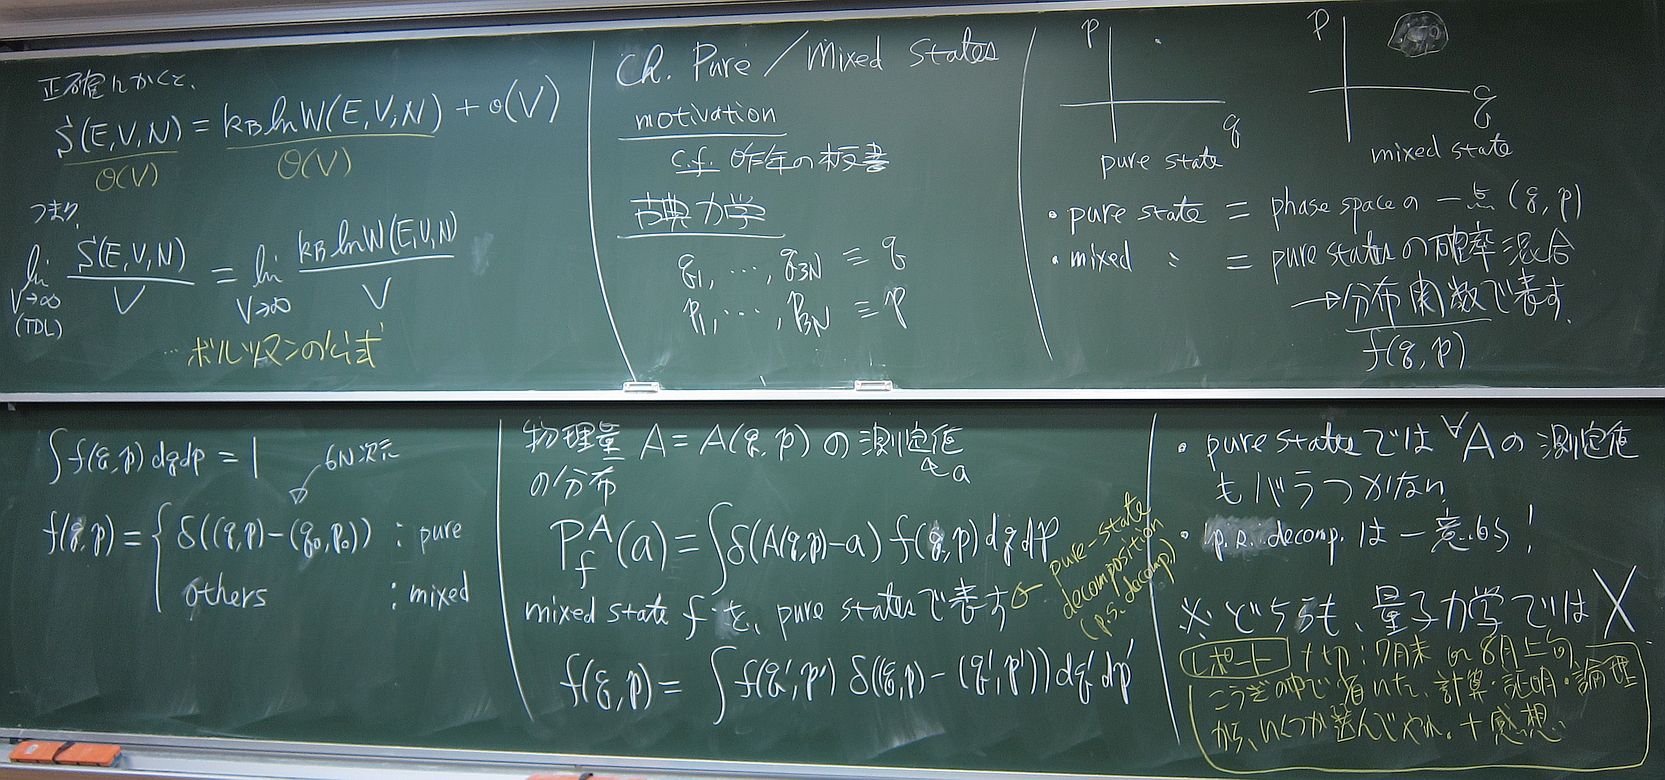 正確にかくと、
S(E,V,N) = k_B ln W(E,V,N) + o(V)
O(V) O(V)
つまり
lim S(E,V,N)/V = lim k_B ln W(E,V,N)/V
V→∞ V→∞
(TDL)
… ボルツマンの公式
Ch. Pure / Mixed States
motivation
c.f. 昨年の板書
古典力学
q₁, …, q₃N ≡ q
p₁, …, p₃N ≡ p
p
q
pure state
p
q
mixed state
・pure state = phase space の一点 (q, p)
・mixed 〃 = pure states の確率混合
→分布関数で表す.
f(q, p)
∫f(q,p) dqdp = 1
6N次元
f(q,p) = { δ((q,p)−(q₀,p₀)) : pure
others : mixed
物理量 A = A(q,p) の測定値
a
の分布
P_f^A(a) = ∫δ(A(q,p)−a) f(q,p) dqdp
mixed state f を、pure states で表す
pure-state
decomposition
(p.s. decomp.)
f(q,p) = ∫ f(q',p') δ((q,p)−(q',p')) dq'dp'
・pure states では ∀A の測定値
もバラつかない
・p.s. decomp. は一意的!
※ どちらも、量子力学では X
レポート 〆切:7月末 or 8月上旬
こうぎの中で省いた、計算・証明・論理
から、いくつか選んでやれ。+ 感想.